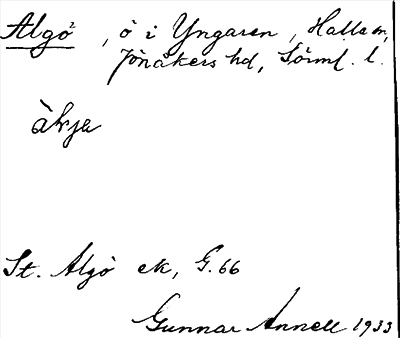 Algö, ö i Yngaren, Halla sn,
Jönåkers hd, Sörml. l.
St. Algö ek, G. 66
Gunnar Annell 1933